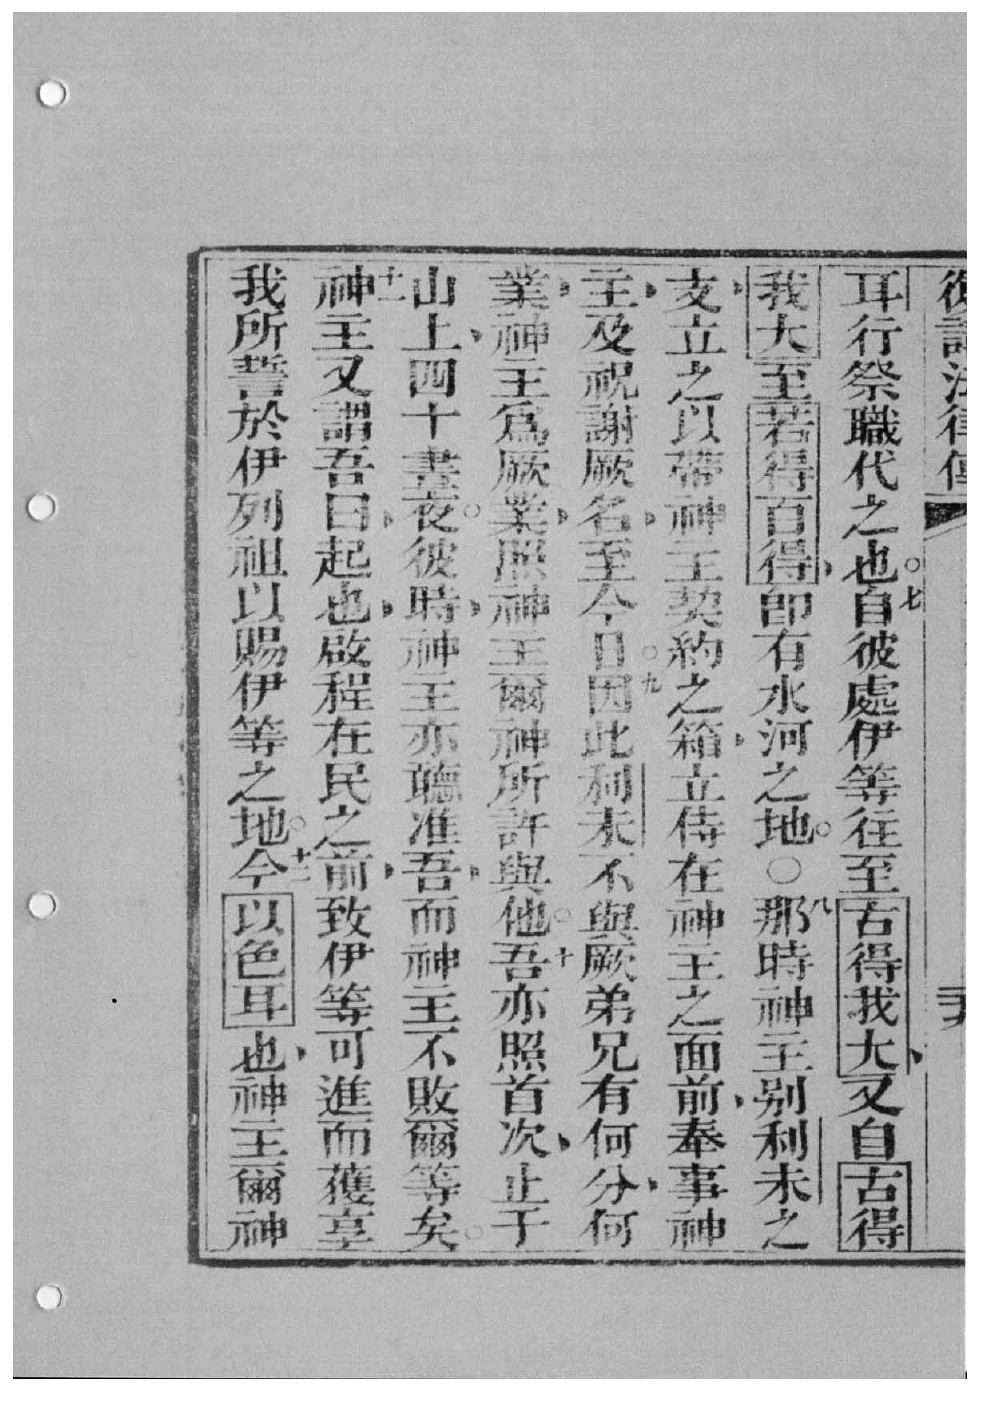 復講法律傳
耳行祭職代之也。七自彼處伊等往至古得我大又自古得
我大至若得百得卽有水河之地。○八那時神主別利未之
支立之以帶神主契約之箱立侍在神主之面前奉事神
主及祝謝厥名至今日。九因此利未不與厥弟兄有何分何
業神主爲厥業照神主爾神所許與他。十吾亦照首次止于
山上四十晝夜。彼時神主亦聽准吾而神主不敗爾等矣。
十一神主又謂吾曰起也啟程在民之前致伊等可進而獲享
我所誓於伊列祖以賜伊等之地。十二今以色耳也神主爾神